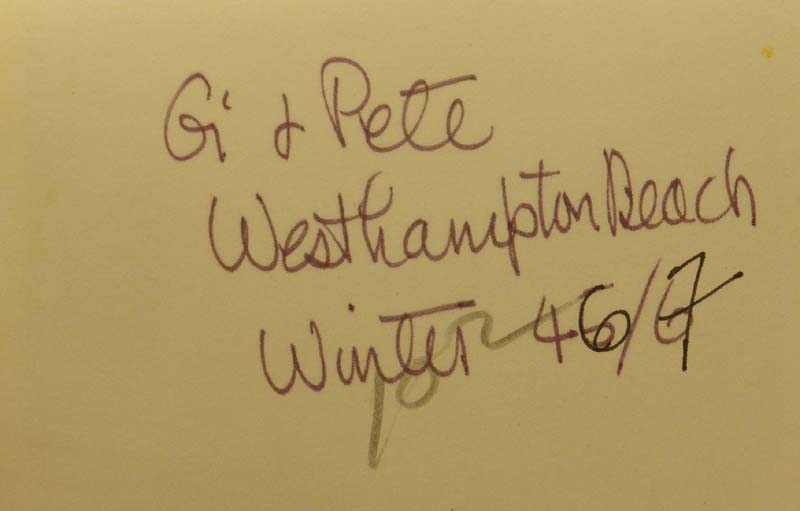 Gi & Pete
Westhampton Beach
Winter 46/7